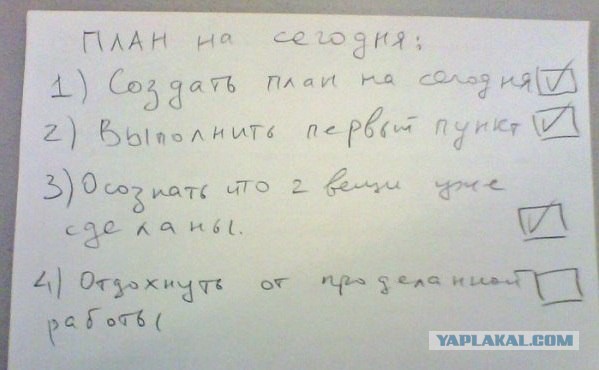 ПЛАН на сегодня:
1) Создать план на сегодня
2) Выполнить первый пункт
3) Осознать что 2 вещи уже
сделаны.
4) Отдохнуть от проделанной
работы
YAPLAKAL.COM